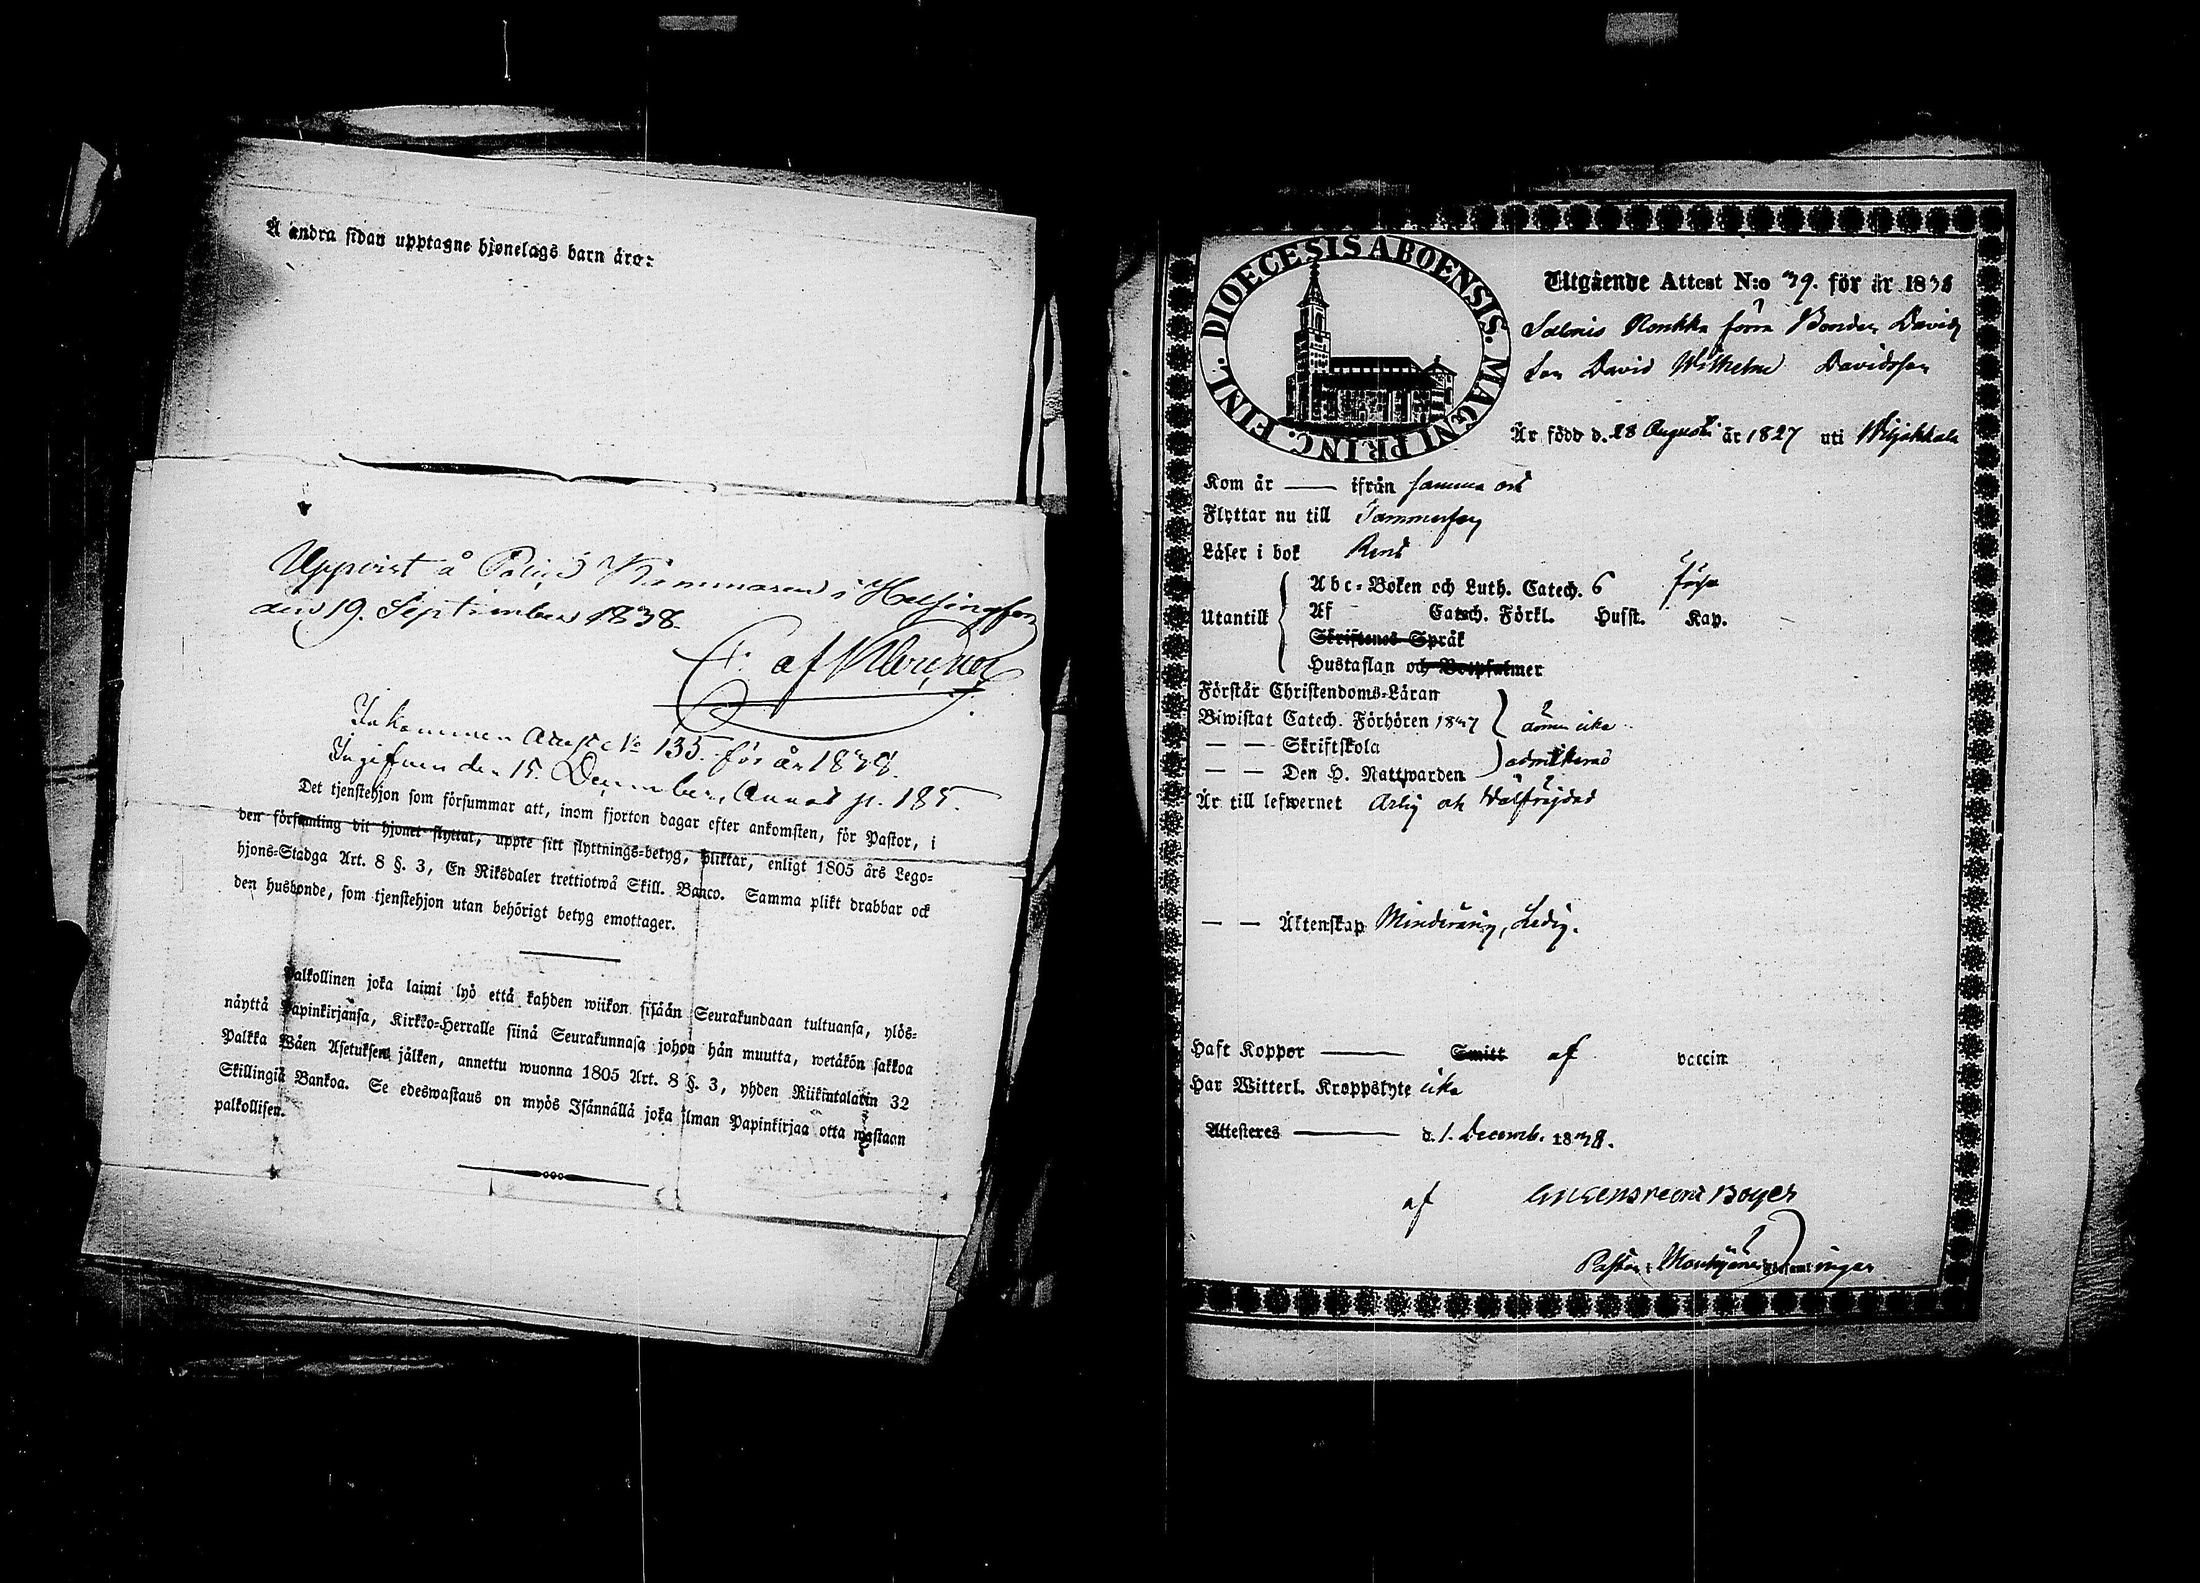 Å andra sidan upptagne hjonelags barn äro:
Uppvist å Polis Kammaren i Helsingfors
den 19. September 1838.
Inkommen Attest No 135. för år 1838.
Ingifven den 15. December, Annot. p. 185.
Det tjenstehjon som försummar att, inom fjorton dagar efter ankomsten, för Pastor, i
den församling dit hjonet flyttat, uppte sitt flyttnings-betyg, pliktar, enligt 1805 års Lego-
hjons-Stadga Art. 8 §. 3, En Riksdaler trettiotwå Skill. Banco. Samma plikt drabbar ock
den husbonde, som tjenstehjon utan behörigt betyg emottager.
Palkollinen joka laimi lyö että kahden wiikon sisään Seurakundaan tultuansa, ylös-
näyttä Papinkirjansa, Kirkko-Herralle siinä Seurakunnasa johon hän muutta, wetäkön sakkoa
Palkka Wäen Asetuksen jälken, annettu wuonna 1805 Art. 8 §. 3, yhden Riikintalarin 32
Skillingiä Bankoa. Se edeswastaus on myös Isännällä joka ilman Papinkirjaa otta wastaan
palkollisen.
DIOECESIS ABOENSIS. MAGNI PRINC. FINL.
Utgående Attest N:o 39. för år 1838
Ronkka förra Bonden Davids
Son David Wilhelm Davidsson
Är född d. 28 Augusti år 1827 uti Wiljakkala
Kom år — ifrån samma ort
Flyttar nu till Tammerfors
Läser i bok Rent
Utantill
Abc-Boken och Luth. Catech. 6
Af Catech. Förkl. Husst. Kap.
Skriftenes Språk
Hustaflan och Botpsalmer
Förstår Christendoms-Läran
Biwistat Catech. Förhören 1837 ännu icke
— — Skriftskola
— — Den H. Nattwarden admitterad
Är till lefwernet Ärlig och Wälfrejdad
— — Äktenskap Minderårig, Ledig.
Haft Koppor — Smitt af vaccin
Har Witterl. Kroppslyte icke
Attesteres — d. 1. Decemb. 1838.
af Boyer
Pastor i Mouhijärvi Församlingar